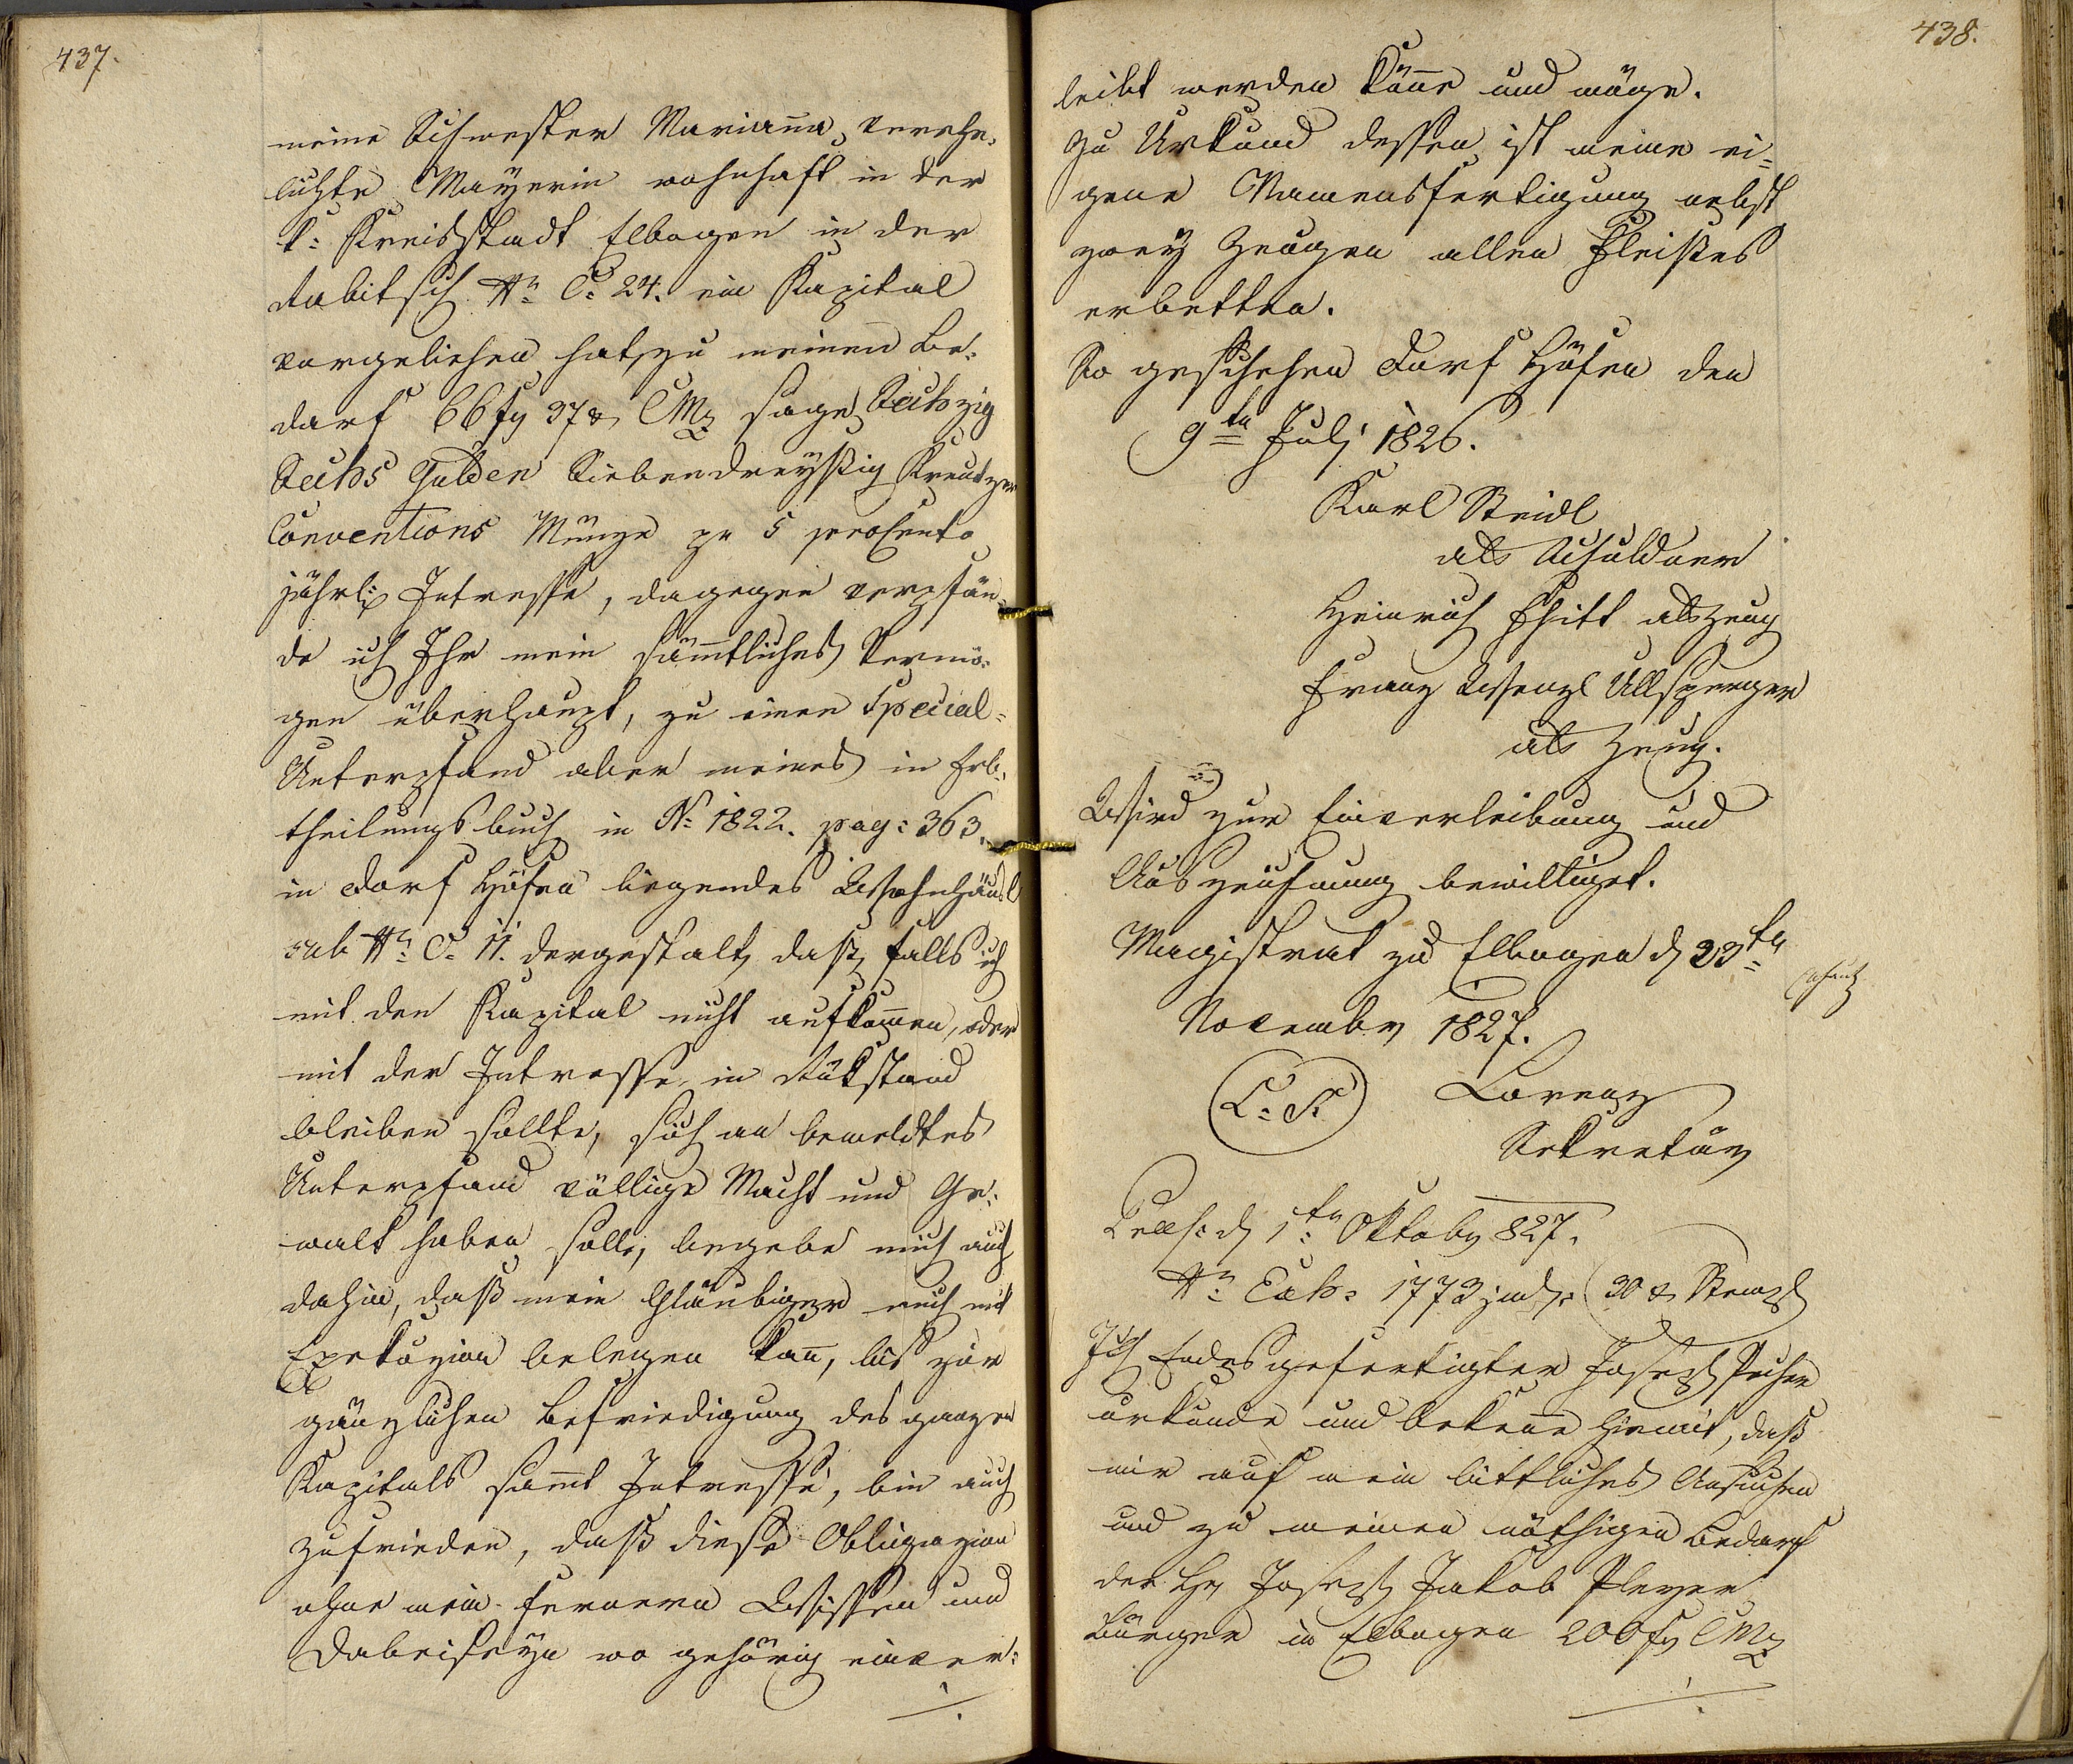 437.
meine Schwester Mariana, verehe,
lichte Mayerin wohnhaft in der
k: Kreisstadt Elbogen in der
Rabitsch N: C: 24. ein Kapital
vorgeliehen hat, zu meinen Be,
darf 66 fl 37 x CMz sage Sechszig
Sechs Gulden Siebendreyßig Kreutzer
Conventions Münze zu 5 procento
jährl: Interesse, dagegen verpfän,
de ich Ihr mein sämmtliches Vermö,
gen überhaupt, zu einen Special=
Unterpfand aber meines in Erb,
theilungsbuch in N: 1822. pag: 363.
in Dorf Höfen liegendes Wohnhäusl
sub N: C: 11. dergestalt, daß, falls ich
mit den Kapital nicht aufkommen, oder
mit der Interesse in Rükstand
bleiben sollte, sich an bemeldtes
Unterpfand völlige Macht und Ge,
walt haben solle, begebe mich auch
dahin, daß mein Gläubiger mich mit
Exekuzion belegen kann, bis zur
gänzlichen Befriedigung des ganzen
Kapitals sammt Interesse, bin auch
zufrieden, daß diese Obligazion
ohne mein fernern Wissen und
Dabeiseyn wo gehörig einver:
./.
438.
leibt werden könne und möge.
Zu Urkund dessen ist meine ei=
gene Namensfertigung nebst
zwey Zeugen allen Fleißes
erbetten.
So geschehen Dorf Höfen den
9ten Juli 1826.
Karl Steidl
als Schuldner
Heinrich als Zeug
Franz Wenzl Ullsperger
als Zeug.
Wird zur Einverleibung und
Auszeichnung bewilliget.
Magistrat zu Elbogen d 23ten
November 1827.
L: S. Lorenz
Sekretär
d 1ten Oktober 827.
N: Exh: 1773 jud: 30 x Stempl
Ich Endesgefertigter Joseph
urkunde und bekenne hiemit, daß
mir auf mein bittliches Ansuchen
und zu meinen nöthigen Bedarf
der H: Joseph Jakob Pleyer
Bürger in Elbogen 200 fl CMz
./.